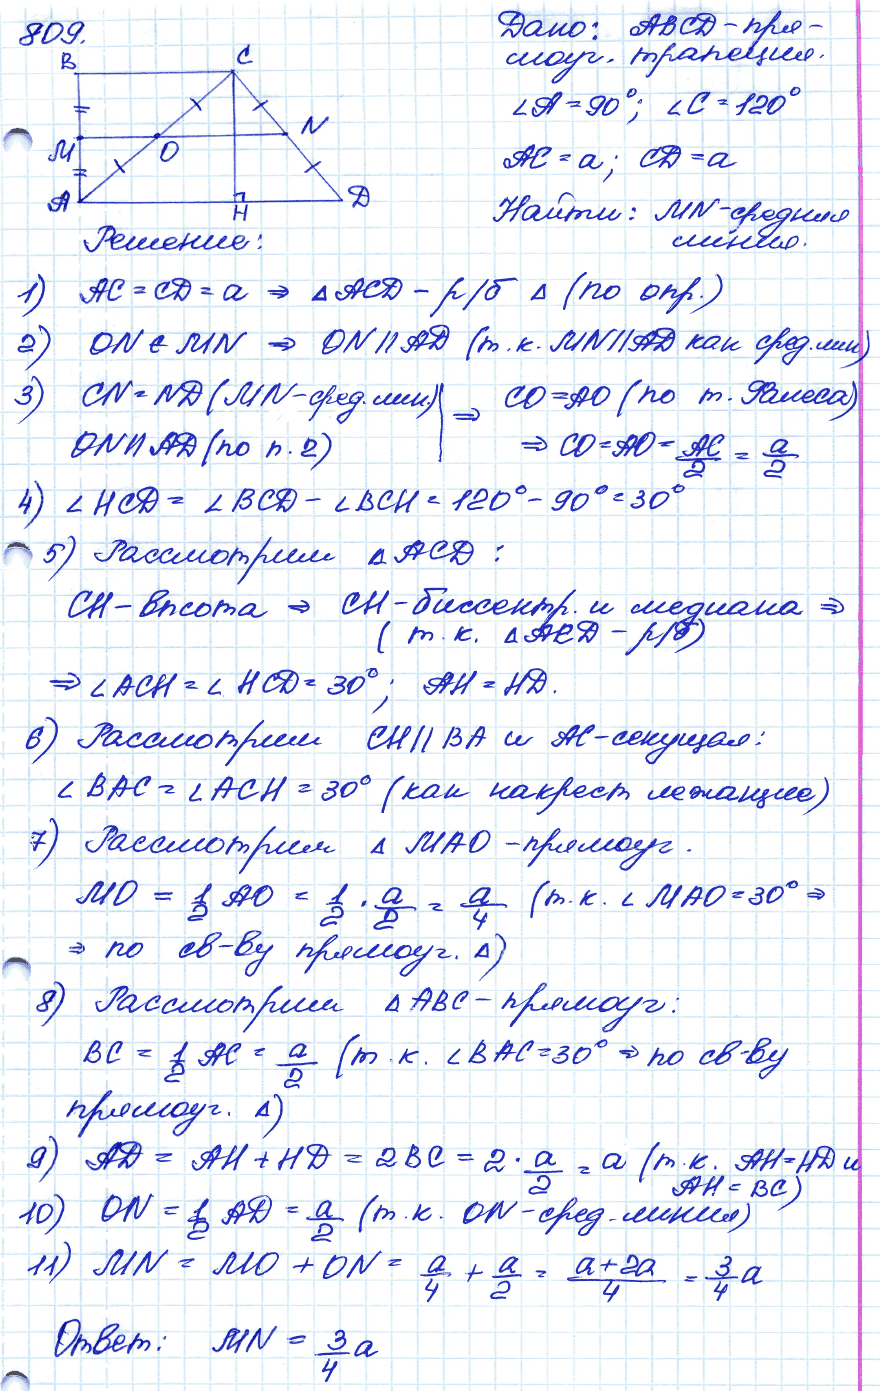 809.
B C
M O N
A H D
Дано: ABCD - пря-
моуг. трапеция.
∠A = 90°; ∠C = 120°
AC = a; CD = a
Найти: MN - средняя
линия.
Решение:
1) AC = CD = a ⇒ △ACD - р/б △ (по опр.)
2) ON ∈ MN ⇒ ON || AD (т.к. MN || AD как сред.лин)
3) CN = ND (MN - сред.лин.) ⇒ CO = AO (по т. Фалеса)
ON || AD (по п. 2) ⇒ CO = AO = AC/2 = a/2
4) ∠HCD = ∠BCD - ∠BCH = 120° - 90° = 30°
5) Рассмотрим △ACD:
CH - высота ⇒ CH - биссектр. и медиана ⇒
(т.к. △ACD - р/б)
⇒ ∠ACH = ∠HCD = 30°; AH = HD.
6) Рассмотрим CH || BA и AC - секущая:
∠BAC = ∠ACH = 30° (как накрест лежащие)
7) Рассмотрим △ MAO - прямоуг.
MO = 1/2 AO = 1/2 · a/2 = a/4 (т.к. ∠MAO = 30° ⇒
⇒ по св-ву прямоуг. △)
8) Рассмотрим △ABC - прямоуг:
BC = 1/2 AC = a/2 (т.к. ∠BAC = 30° ⇒ по св-ву
прямоуг. △)
9) AD = AH + HD = 2BC = 2 · a/2 = a (т.к. AH = HD и
AH = BC)
10) ON = 1/2 AD = a/2 (т.к. ON - сред. линия)
11) MN = MO + ON = a/4 + a/2 = a+2a/4 = 3/4 a
Ответ: MN = 3/4 a